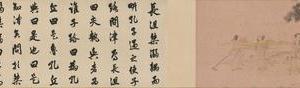 長沮桀溺耦而
耕孔子過之使子
路問津焉長沮
曰夫執輿者為
誰子路曰為孔
丘曰是魯孔丘
與曰是也曰是
知津矣問於桀